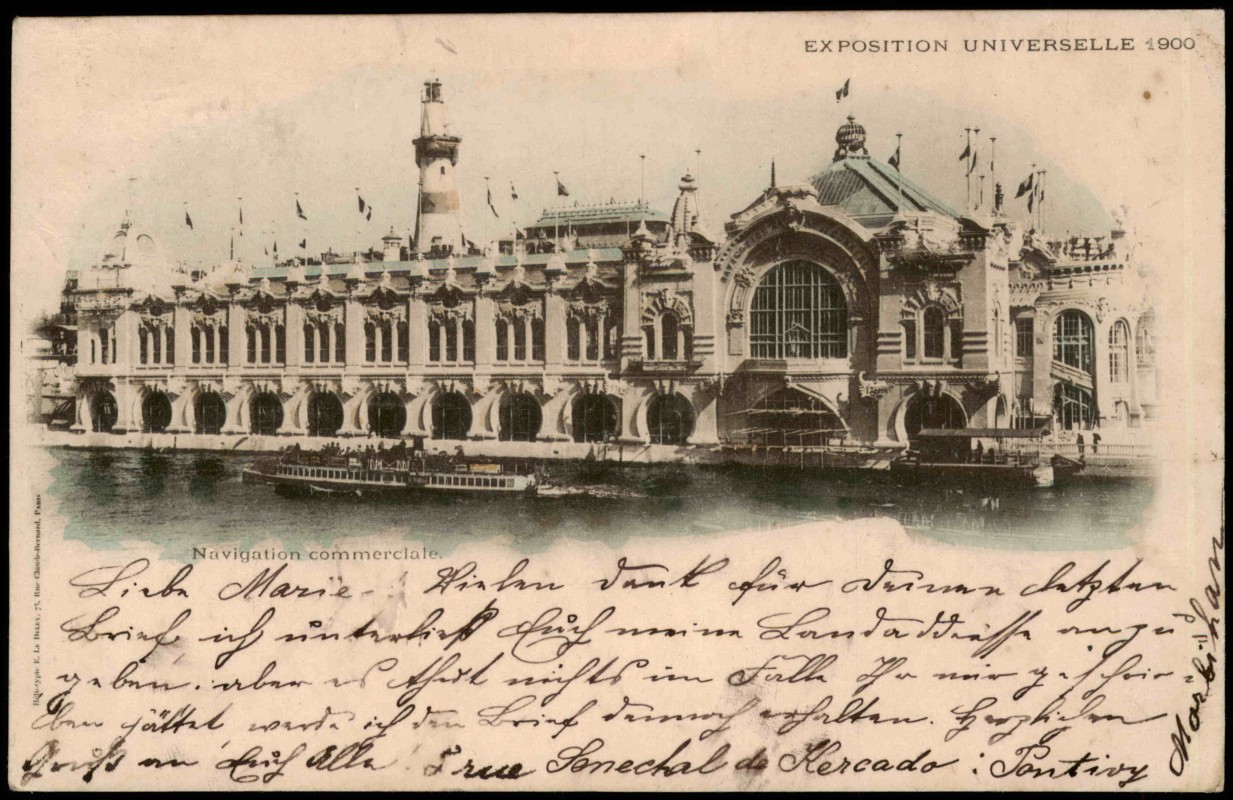 EXPOSITION UNIVERSELLE 1900
Navigation commerciale.
Héliotypie E. Le Deley, 73, Rue Claude-Bernard, Paris
Liebe Marie. Vielen Dank für Deinen letzten
Brief, ich unterließ Euch meine Landaddresse anzu
geben: aber es thut nichts im Falle Ihr mir geschrie-
ben hättet, werde ich den Brief dennoch erhalten. Herzlichen
Gruß an Euch Alle rue Senechal de Kercado : Pontivy
Morbihan